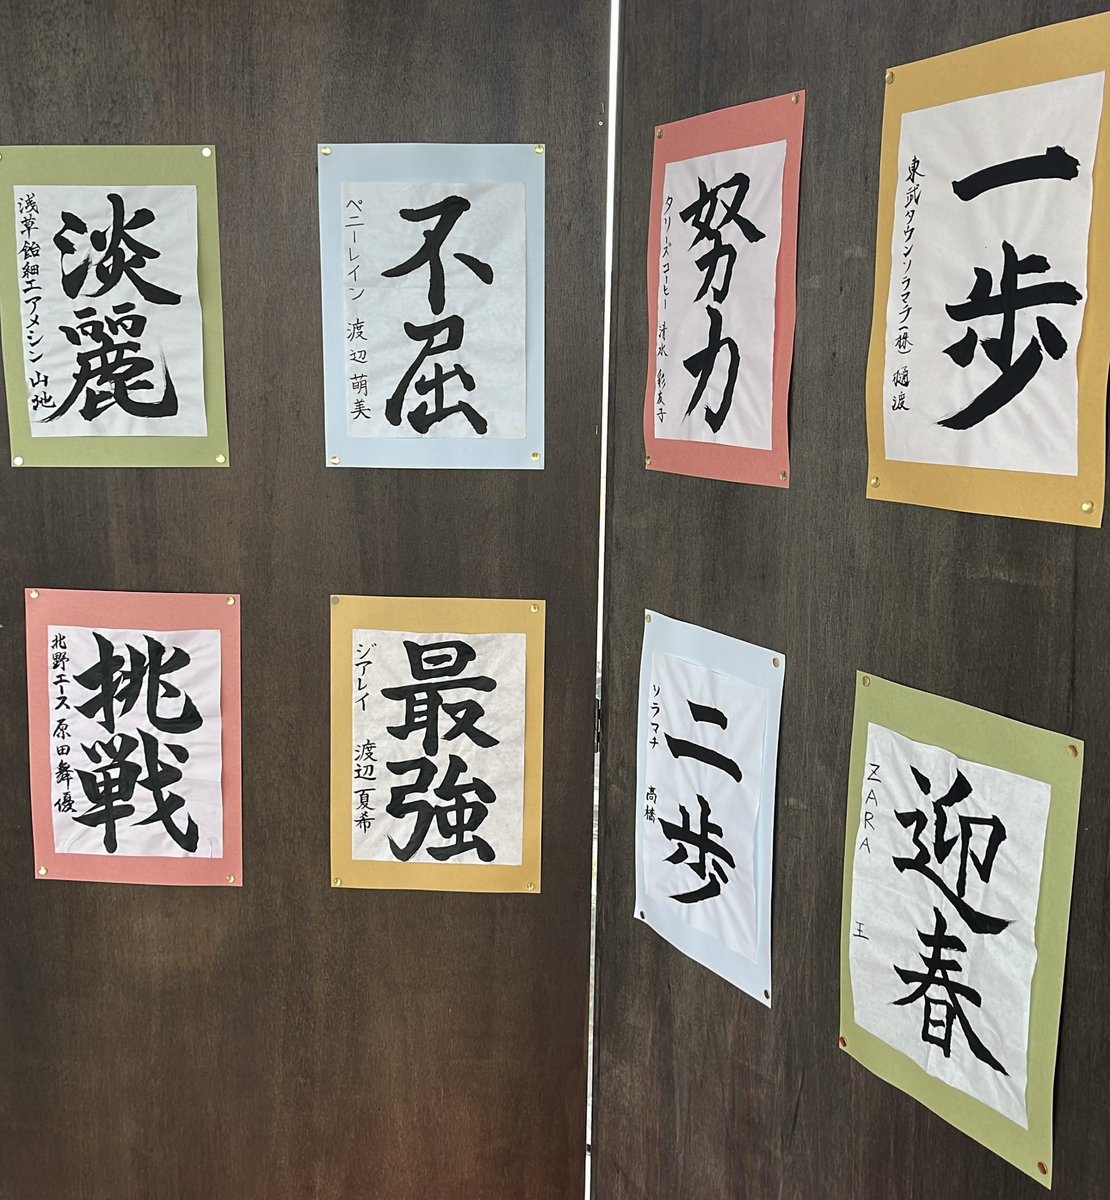 淡麗
浅草飴細工アメシン 山地
不屈
ペニーレイン 渡辺萌美
努力
タリーズコーヒー 清水 彩友子
一歩
東武タウンソラマチ(株) 樋渡
挑戦
北野エース 原田舞優
最強
ジアレイ 渡辺夏希
二歩
ソラマチ 高橋
迎春
ZARA 王